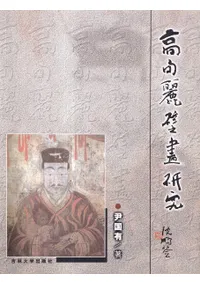 高句麗壁畫研究
沈鹏签
尹国有 著
吉林大学出版社